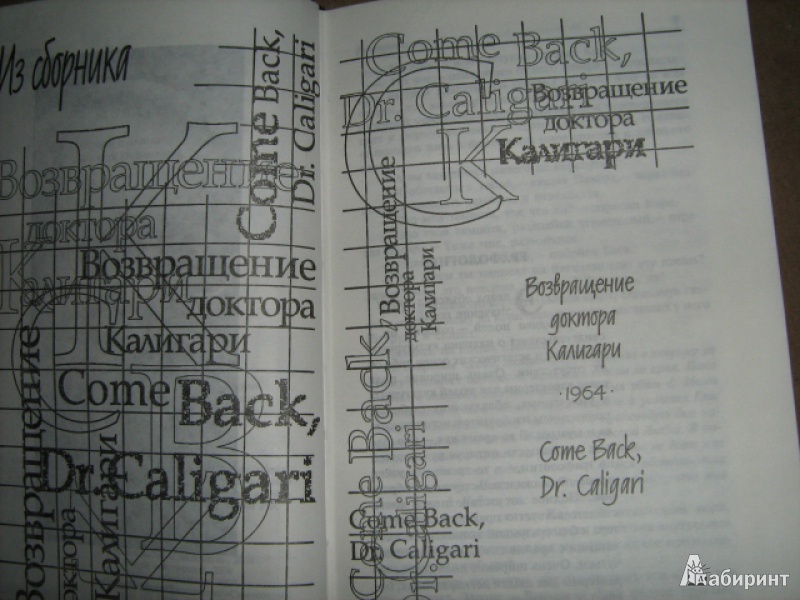 Из сборника
Come Back,
Dr. Caligari
Возвращение
доктора
Калигари
Возвращение
доктора
Калигари
Come Back,
Dr. Caligari
Возвращение
доктора
Калигари
Come Back,
Dr. Caligari
К
Возвращение
доктора
Калигари
Come Back,
Dr. Caligari
Возвращение
доктора
Калигари
Come Back,
Dr. Caligari
Возвращение
доктора
Калигари
·1964·
Come Back,
Dr. Caligari
Лабиринт